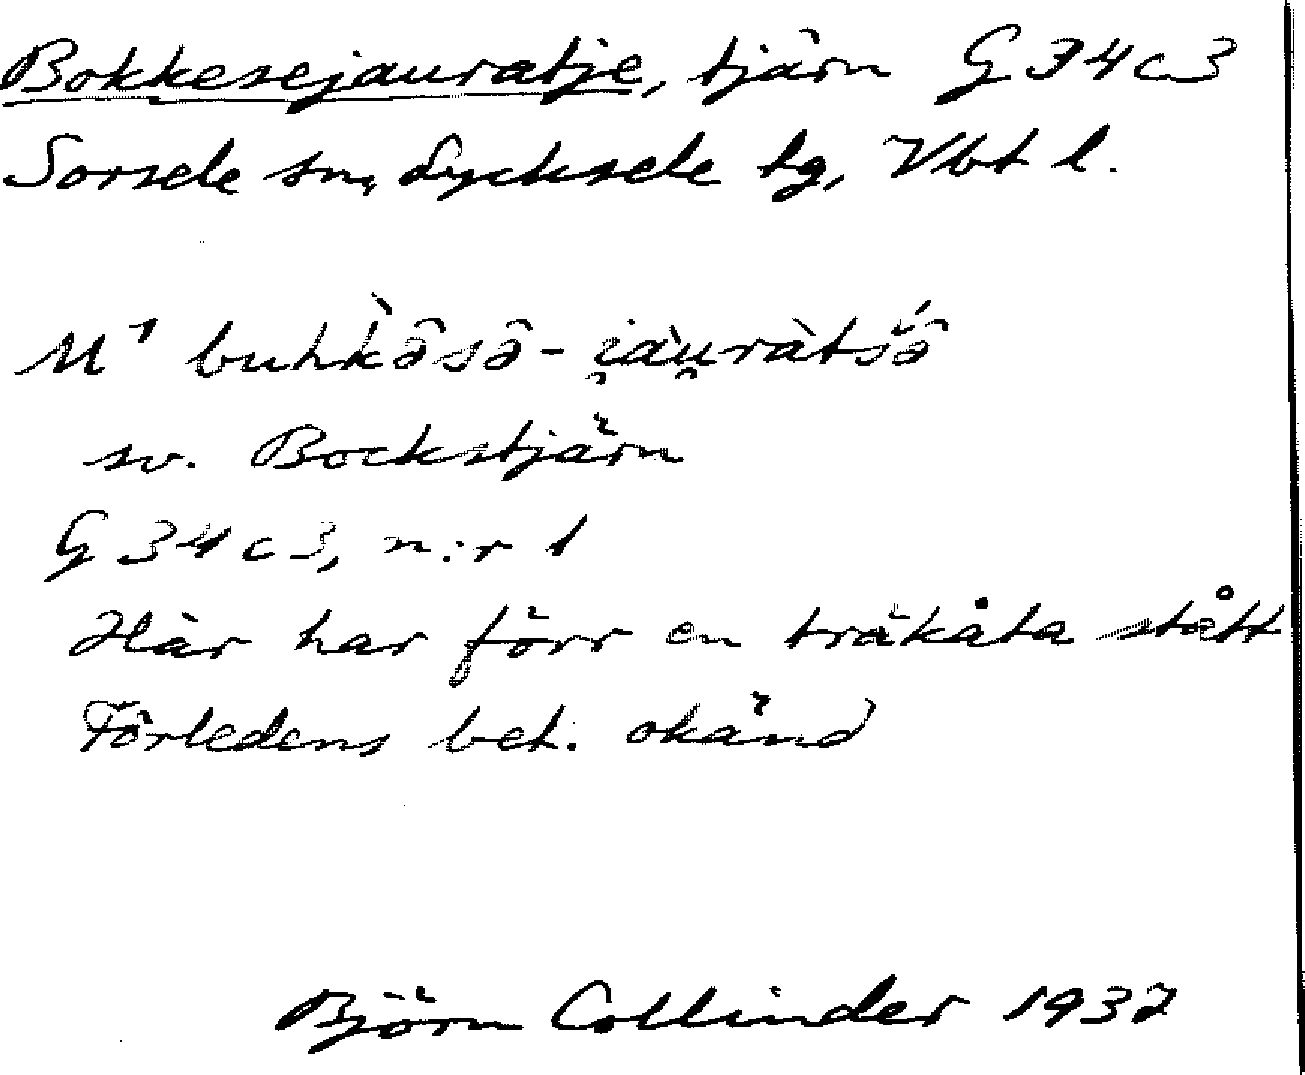 Bokkesejauratje, tjärn G 34 c 3
Sorsele sn, Lycksele lg, Vbt l.
M¹ buhk̀ə̂sə̂-i̯àu̯ràtśə̂
sv. Bockstjärn
G 34 c 3, n:r 1
Här har förr en träkåta stått
Förledens bet. okänd
Björn Collinder 1937